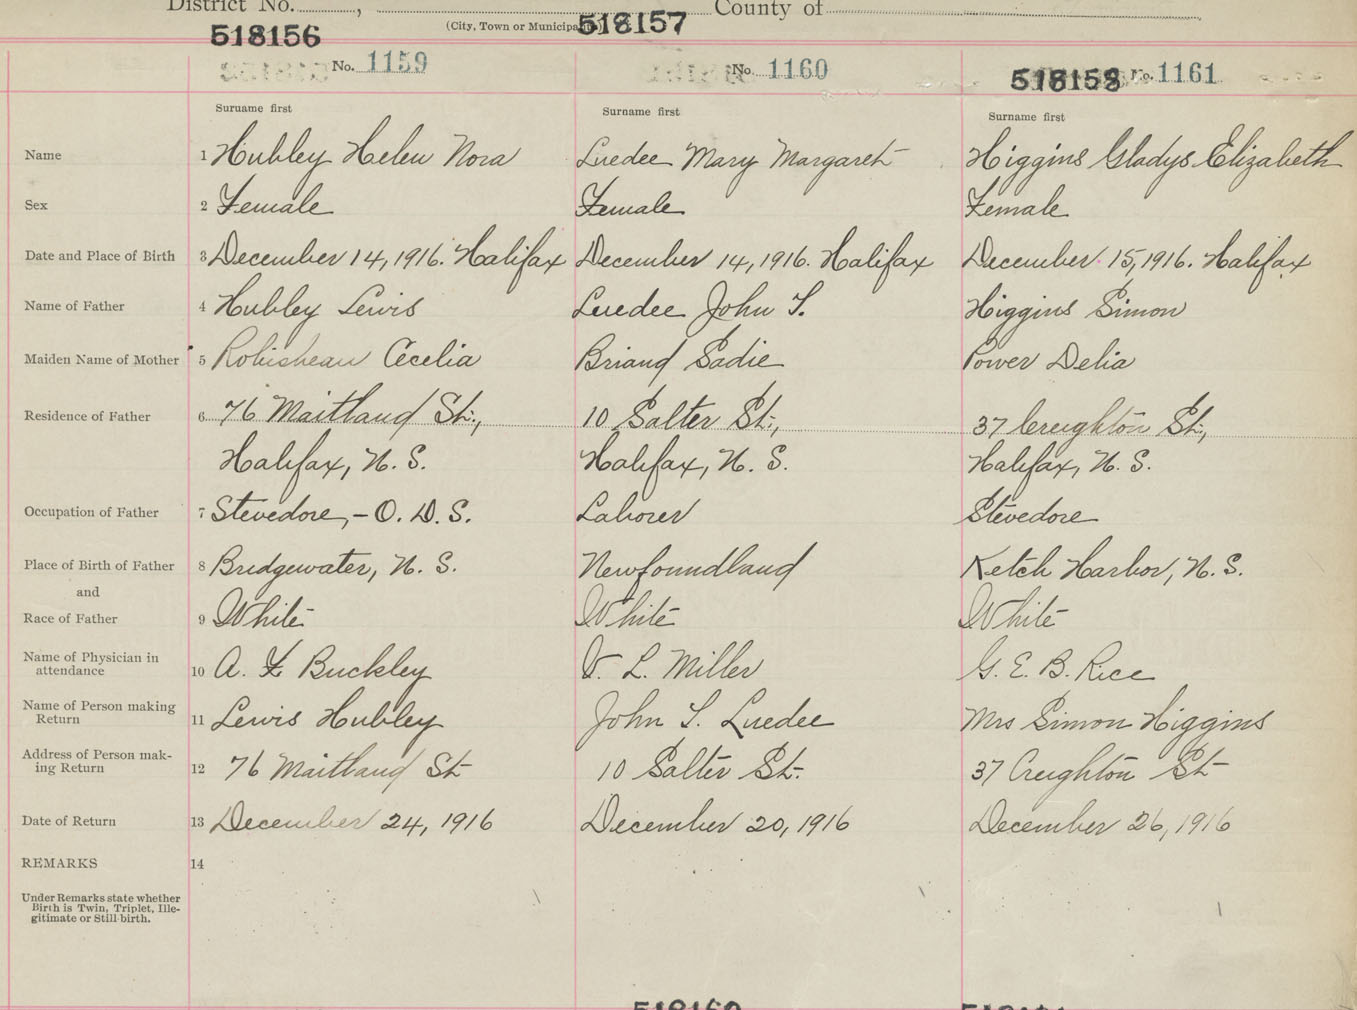 District No. , County of
(City, Town or Municipality)
518156 518157
No. 1159 No. 1160 518158 No. 1161
Surname first Surname first Surname first
Name 1 Hubley Helen Nora Luedee Mary Margaret Higgins Gladys Elizabeth
Sex 2 Female Female Female
Date and Place of Birth 3 December 14, 1916. Halifax December 14, 1916. Halifax December 15, 1916. Halifax
Name of Father 4 Hubley Lewis Luedee John T. Higgins Simon
Maiden Name of Mother 5 Robisheau Cecelia Briand Sadie Power Delia
Residence of Father 6 76 Maitland St., 10 Salter St., 37 Creighton St.,
Halifax, N. S. Halifax, N. S. Halifax, N. S.
Occupation of Father 7 Stevedore, - O. D. S. Laborer Stevedore
Place of Birth of Father 8 Bridgewater, N. S. Newfoundland Ketch Harbor, N. S.
and
Race of Father 9 White White White
Name of Physician in
attendance 10 A. F Buckley V. L. Miller G. E. B. Rice
Name of Person making
Return 11 Lewis Hubley John T. Luedee Mrs Simon Higgins
Address of Person mak-
ing Return 12 76 Maitland St 10 Salter St. 37 Creighton St
Date of Return 13 December 24, 1916 December 20, 1916 December 26, 1916
REMARKS 14
Under Remarks state whether
Birth is Twin, Triplet, Ille-
gitimate or Still birth.
518160